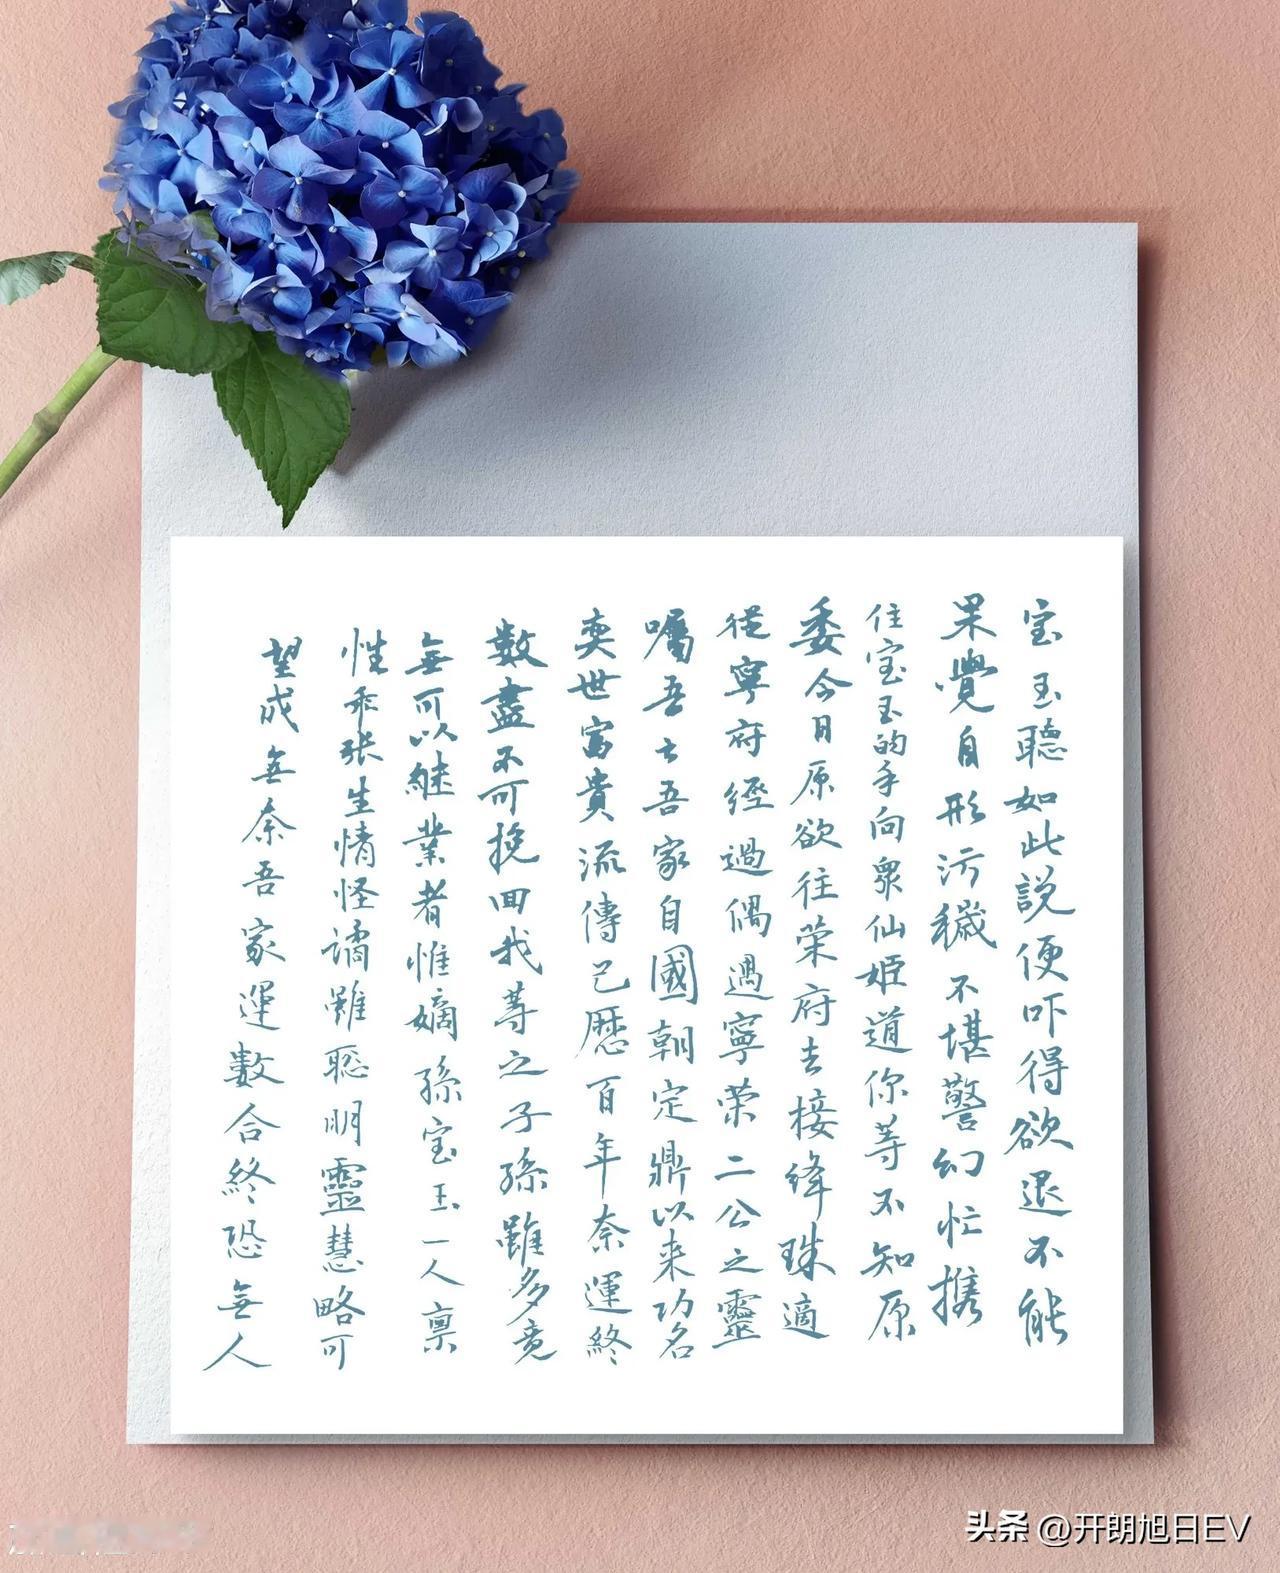 宝玉聽如此説便吓得欲退不能
果覺自形污穢不堪警幻忙携
住宝玉的手向衆仙姬道你等不知原
委今日原欲往荣府去接绛珠適
從寧府經過偶遇寧荣二公之靈
囑吾云吾家自國朝定鼎以来功名
奕世富貴流傳已歷百年奈運終
數盡不可挽回我等之子孫雖多竟
無可以継業者惟嫡孫宝玉一人禀
性乖张生情怪譎雖聡明靈慧略可
望成無奈吾家運數合終恐無人
头条 @开朗旭日EV